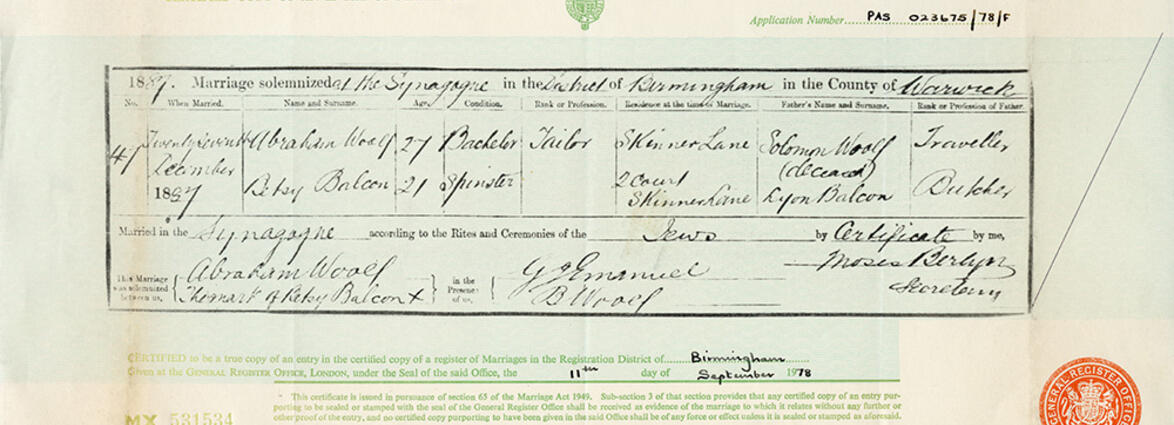 Application Number PAS 023675/78/F
1887. Marriage solemnized at the Synagogue in the District of Birmingham in the County of Warwick
No. When Married. Name and Surname. Age. Condition. Rank or Profession. Residence at the time of Marriage. Father's Name and Surname. Rank or Profession of Father.
47 Twentyseventh December 1887 Abraham Woolf 27 Bachelor Tailor Skinner Lane Solomon Woolf (deceased) Traveller
Betsy Balcon 21 Spinster 2 Court Skinner Lane Lyon Balcon Butcher
Married in the Synagogue according to the Rites and Ceremonies of the Jews by Certificate by me,
This Marriage was solemnized between us, Abraham Woolf in the Presence of us, G J Emanuel Moses Berlyn
The mark of Betsy Balcon X B Woolf Secretary
CERTIFIED to be a true copy of an entry in the certified copy of a register of Marriages in the Registration District of Birmingham
Given at the GENERAL REGISTER OFFICE, LONDON, under the Seal of the said Office, the 11th day of September 1978
This certificate is issued in pursuance of section 65 of the Marriage Act 1949. Sub-section 3 of that section provides that any certified copy of an entry pur-
porting to be sealed or stamped with the seal of the General Register Office shall be received as evidence of the marriage to which it relates without any further or
other proof of the entry, and no certified copy purporting to have been given in the said Office shall be of any force or effect unless it is sealed or stamped as aforesaid.
MX 531534
GENERAL REGISTER OFFICE